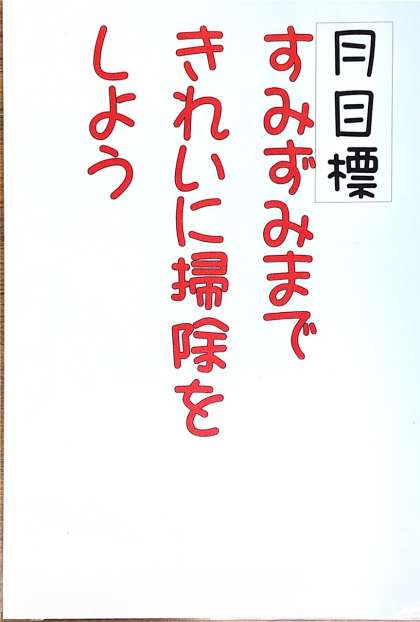 月目標
すみずみまで
きれいに掃除を
しよう